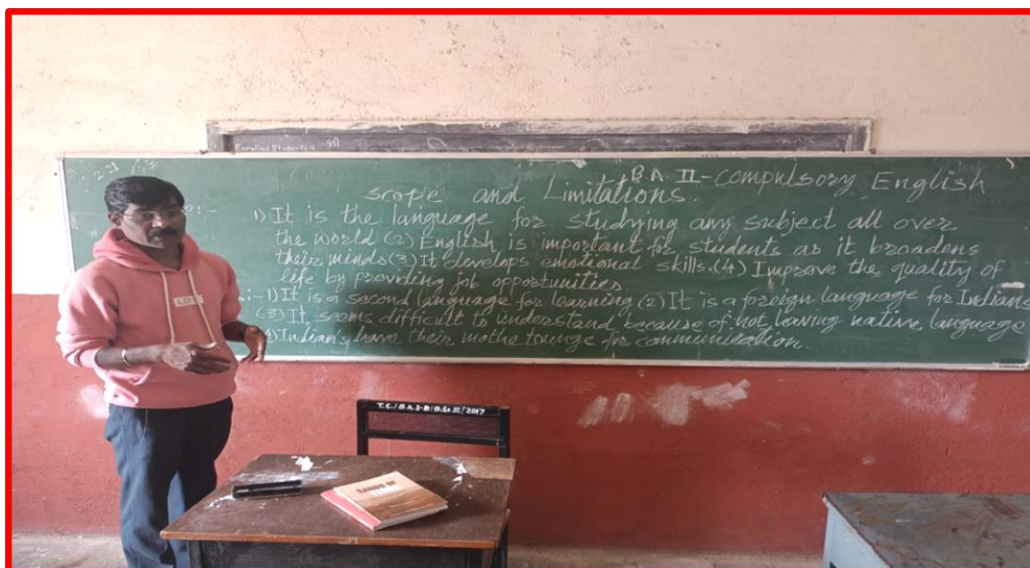 Enrolled Students
B.A. II - Compulsory English
scope and Limitations.
1) It is the language for studying any subject all over
the world (2) English is important for students as it broadens
their minds (3) It develops emotional skills. (4) Improve the quality of
life by providing job opportunities.
:- 1) It is a second language for learning (2) It is a foreign language for Indians
(3) It seems difficult to understand because of not having native language
4) Indian's have their mothe tounge for communication.
T.C./B.A.I-B/B.Sc II/2017